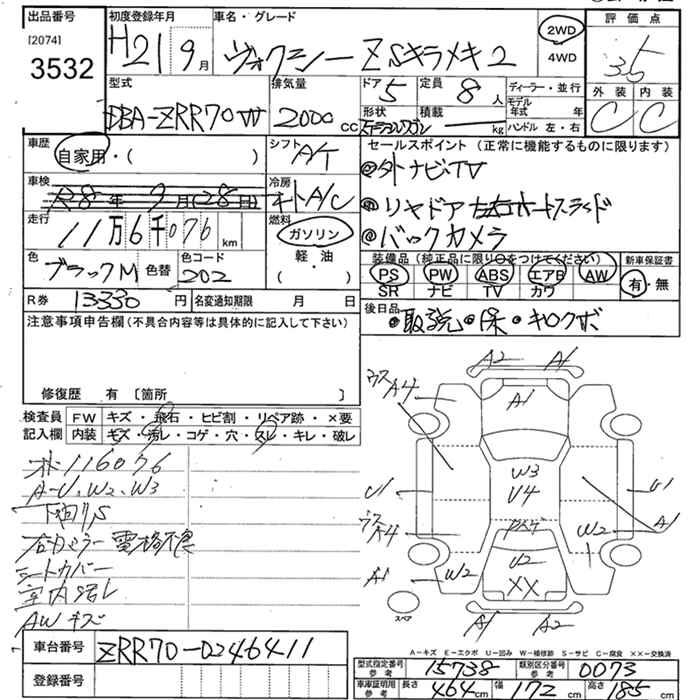 出品番号
[2074]
3532
初度登録年月
H21 9月
車名・グレード
ヴォクシー ZSキラメキ2
2WD
4WD
評価点
3.5
外装 内装
C C
型式
DBA-ZRR70W
排気量
2000cc
ドア 5
形状
積載 kg
定員 8人
ディーラー・並行
モデル年式 年
ハンドル 左・右
車歴
自家用・( )
シフト
A/T
車検
R8年9月(28日)
冷房
オートA/C
走行
11万6千076km
燃料
ガソリン
軽・油
( )
色
ブラックM
色替
色コード
202
R券 13330円
名変通知期限 月 日
セールスポイント(正常に機能するものに限ります)
◎外ナビ・TV
◎リヤドア左右オートスライド
◎バックカメラ
装備品(純正品に限り○をつけてください)
PS PW ABS エアB AW
SR ナビ TV カワ
新車保証書
有・無
後日品
・取説・保・キロクボ
注意事項申告欄(不具合内容等は具体的に記入して下さい)
修復歴 有〔箇所 〕
検査員記入欄
FW キズ・飛石・ヒビ割・リペア跡・×要
内装 キズ・汚レ・コゲ・穴・スレ・キレ・破レ
116076
A-U、W2、W3
下廻リS
右ミラー電格不良
シートカバー
室内汚レ
AWキズ
A2 A1
ウスA4
A1
W3
U4
U1
U1
ウスA4
A1
W2
A1
W2
U2
XX
A1 A2
スペア
A-キズ E-エクボ U-凹み W-補修跡 S-サビ C-腐食 XX-交換済
車台番号
ZRR70-0246411
登録番号
型式指定番号 参考
15738
類別区分番号 参考
0073
車庫証明用 参考
長さ 464cm 幅 172cm 高さ 185cm